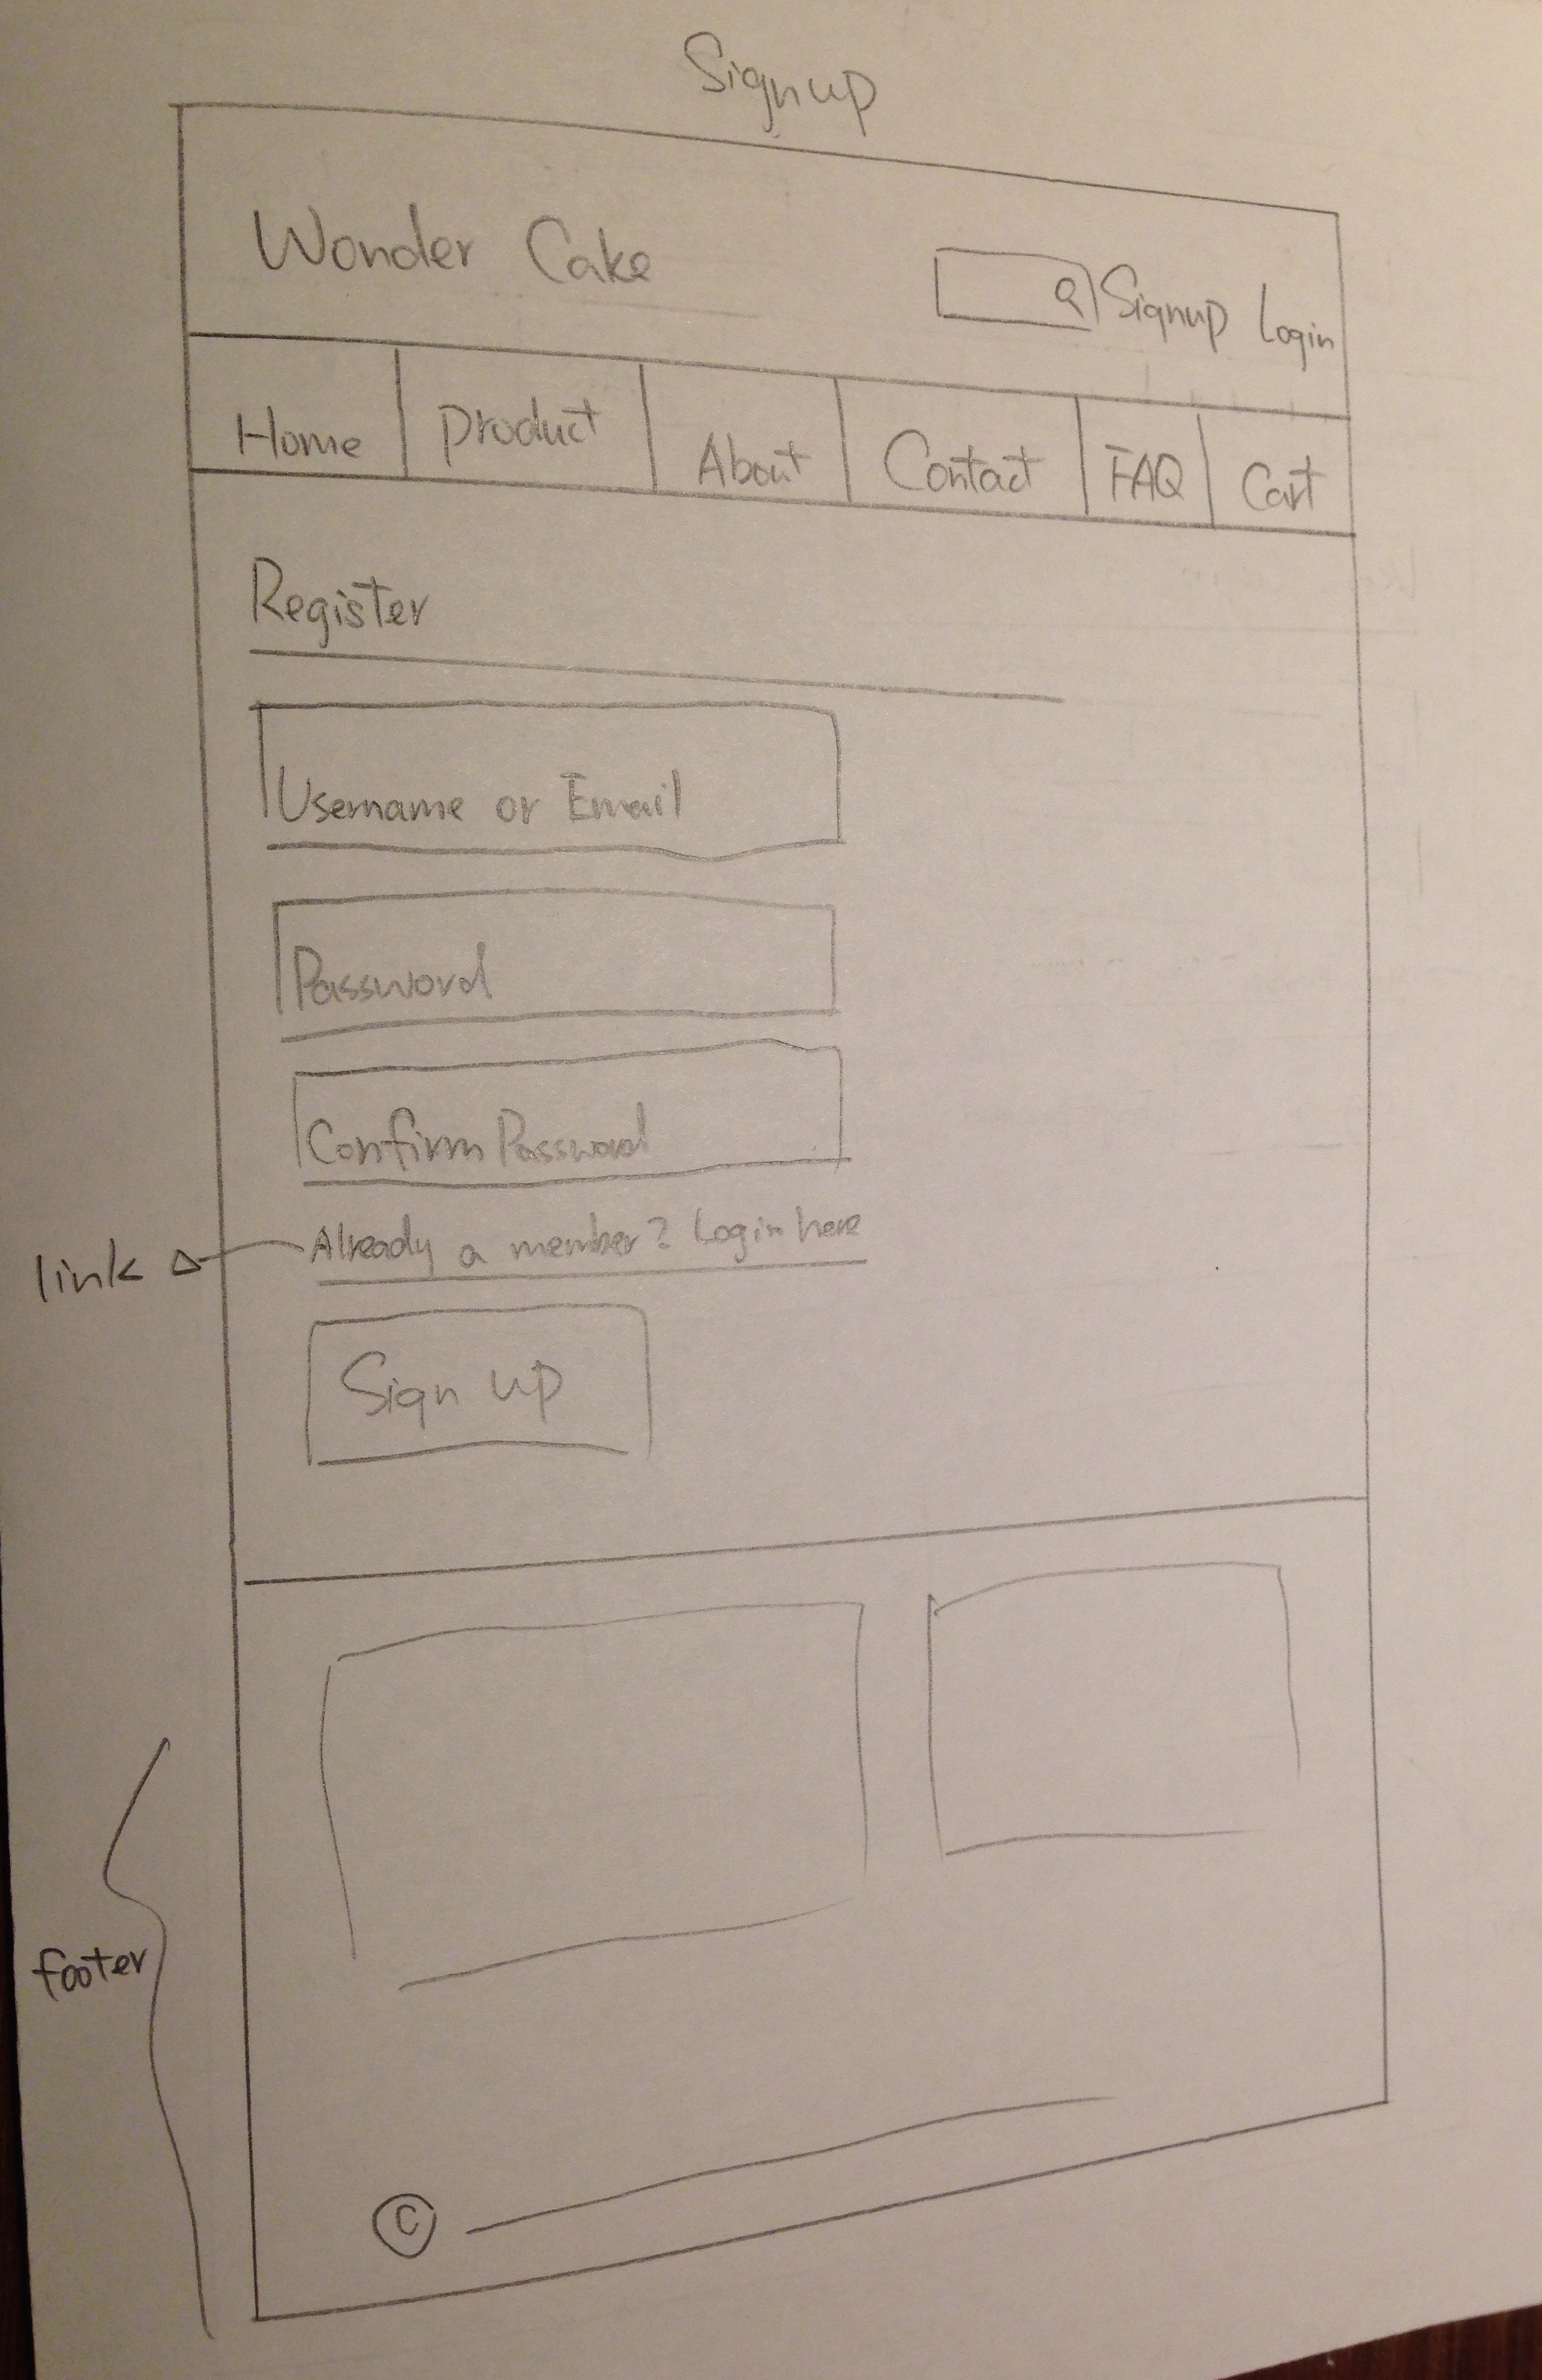 Signup
Wonder Cake
Signup Login
Home Product About Contact FAQ Cart
Register
Username or Email
Password
Confirm Password
Already a member? Login here
link
Sign up
footer
©